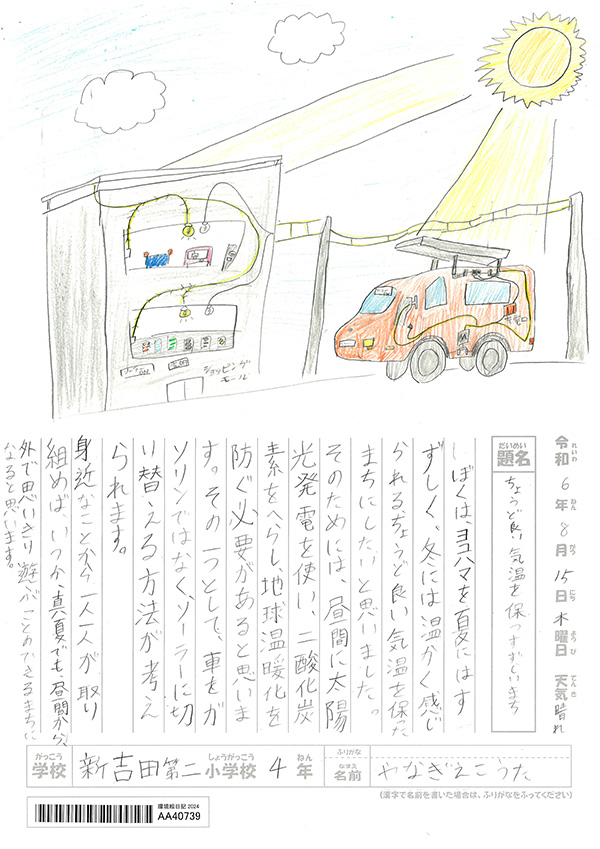 ショッピング
モール
令和6年8月15日木曜日 天気晴れ
れいわ ねん がつ にち ようび てんき
だいめい
題名
ちょうど良い気温を保つすずしいまち
ぼくは、ヨコハマを夏にはす
ずしく、冬には温かく感じ
られるちょうど良い気温を保った
まちにしたいと思いました。
そのためには、昼間に太陽
光発電を使い、二酸化炭
素をへらし、地球温暖化を
防ぐ必要があると思いま
す。その一つとして、車をガ
ソリンではなく、ソーラーに切
り替える方法が考え
られます。
身近なことから一人一人が取り
組めば、いつか、真夏でも、昼間から、
外で思いきり遊ぶことのできるまちに
なると思います。
がっこう しょうがっこう ねん
学校 新吉田第二小学校 4年
ふりがな
なまえ
名前 やなぎえこうた
(漢字で名前を書いた場合は、ふりがなをふってください)
環境絵日記 2024
AA40739